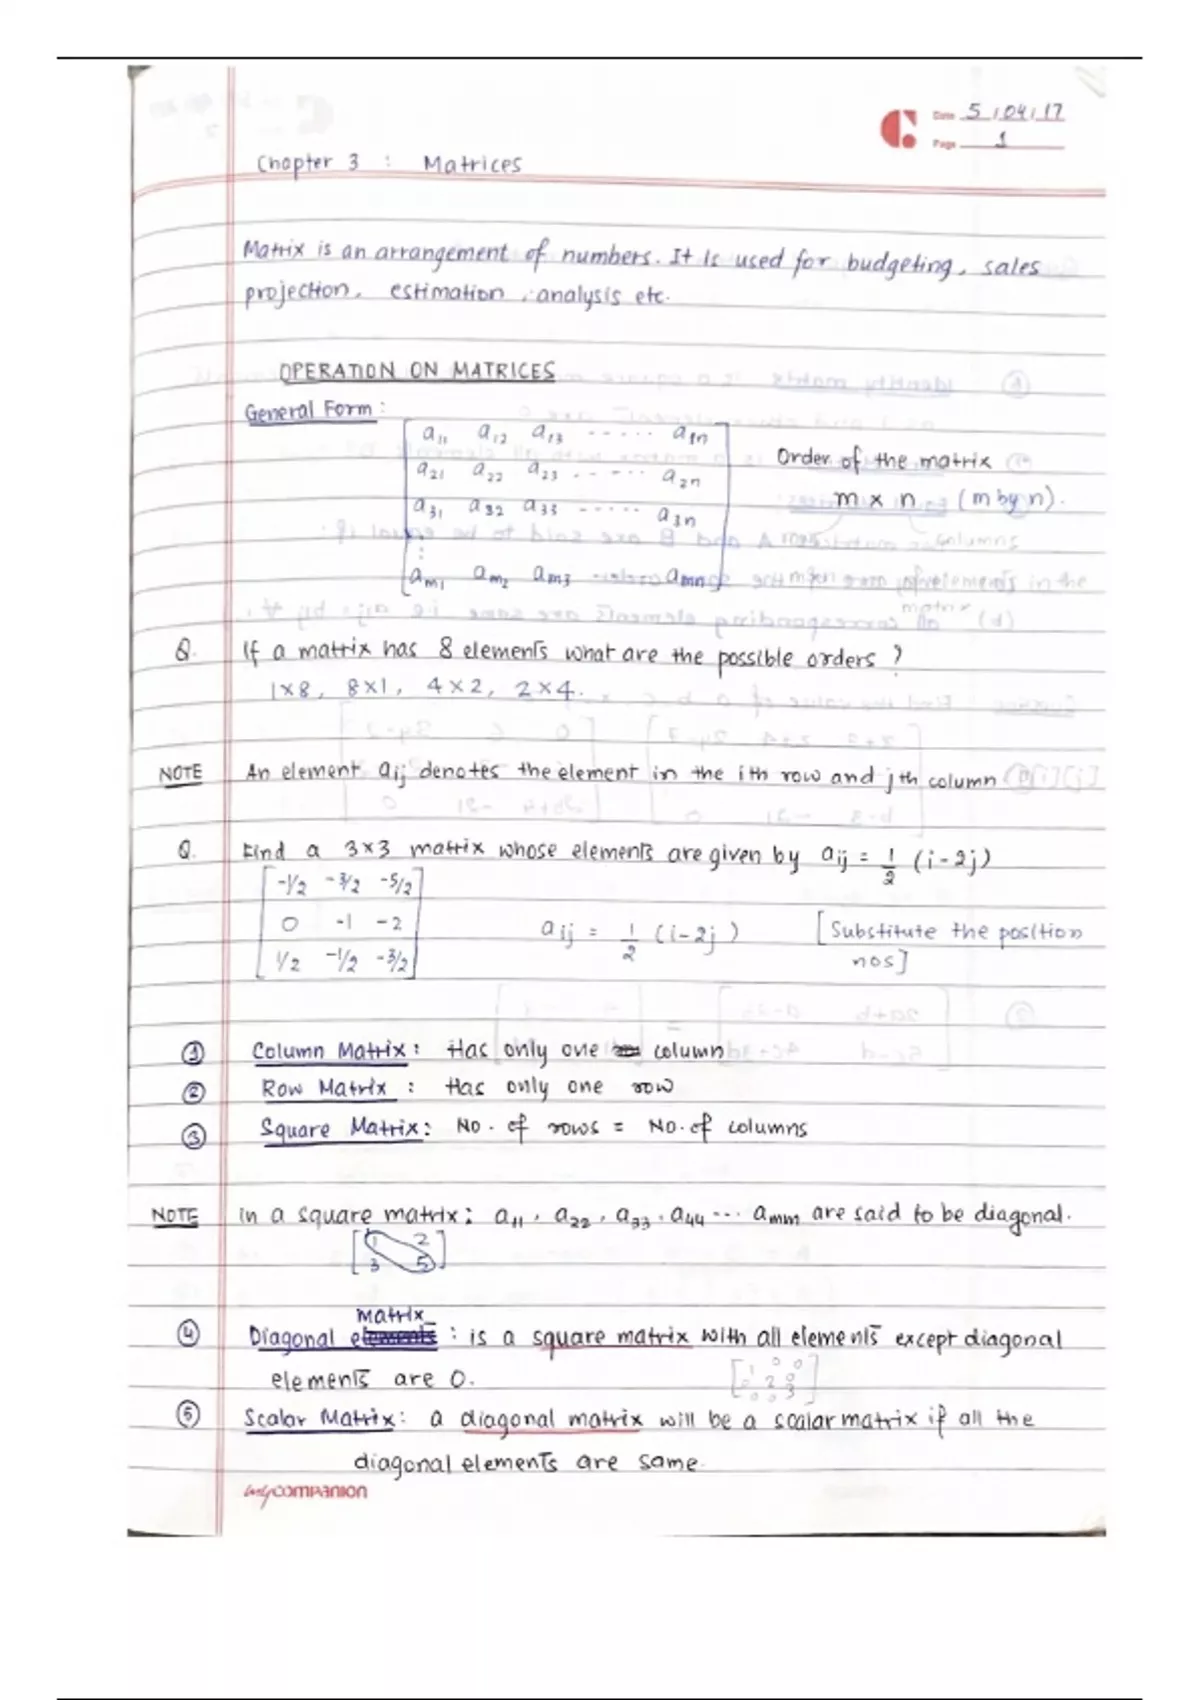 Date 5/04/17
Page 1
Chapter 3 : Matrices
Matrix is an arrangement of numbers. It is used for budgeting, sales
projection, estimation, analysis etc.
OPERATION ON MATRICES
General Form :
a11 a12 a13 ----- a1n
a21 a22 a23 ----- a2n
a31 a32 a33 ----- a3n
⋮
am1 am2 am3 ----- amn
Order of the matrix
m x n (m by n).
rows columns
mxn = no. of elements in the
matrix
Q. If a matrix has 8 elements what are the possible orders ?
1x8, 8x1, 4x2, 2x4.
NOTE An element aij denotes the element in the ith row and jth column a[i][j]
Q. Find a 3x3 matrix whose elements are given by aij = 1/2 (i-2j)
-1/2 -3/2 -5/2
0 -1 -2
1/2 -1/2 -3/2
aij = 1/2 (i-2j) [Substitute the position
nos]
① Column Matrix : Has only one column
② Row Matrix : Has only one row
③ Square Matrix : No. of rows = No. of columns
NOTE in a square matrix; a11, a22, a33, a44 ... amm are said to be diagonal.
1 2
3 5
matrix
④ Diagonal : is a square matrix with all elements except diagonal
elements are 0.
1 0 0
0 2 0
0 0 3
⑤ Scalar Matrix : a diagonal matrix will be a scalar matrix if all the
diagonal elements are same.
mycompanion